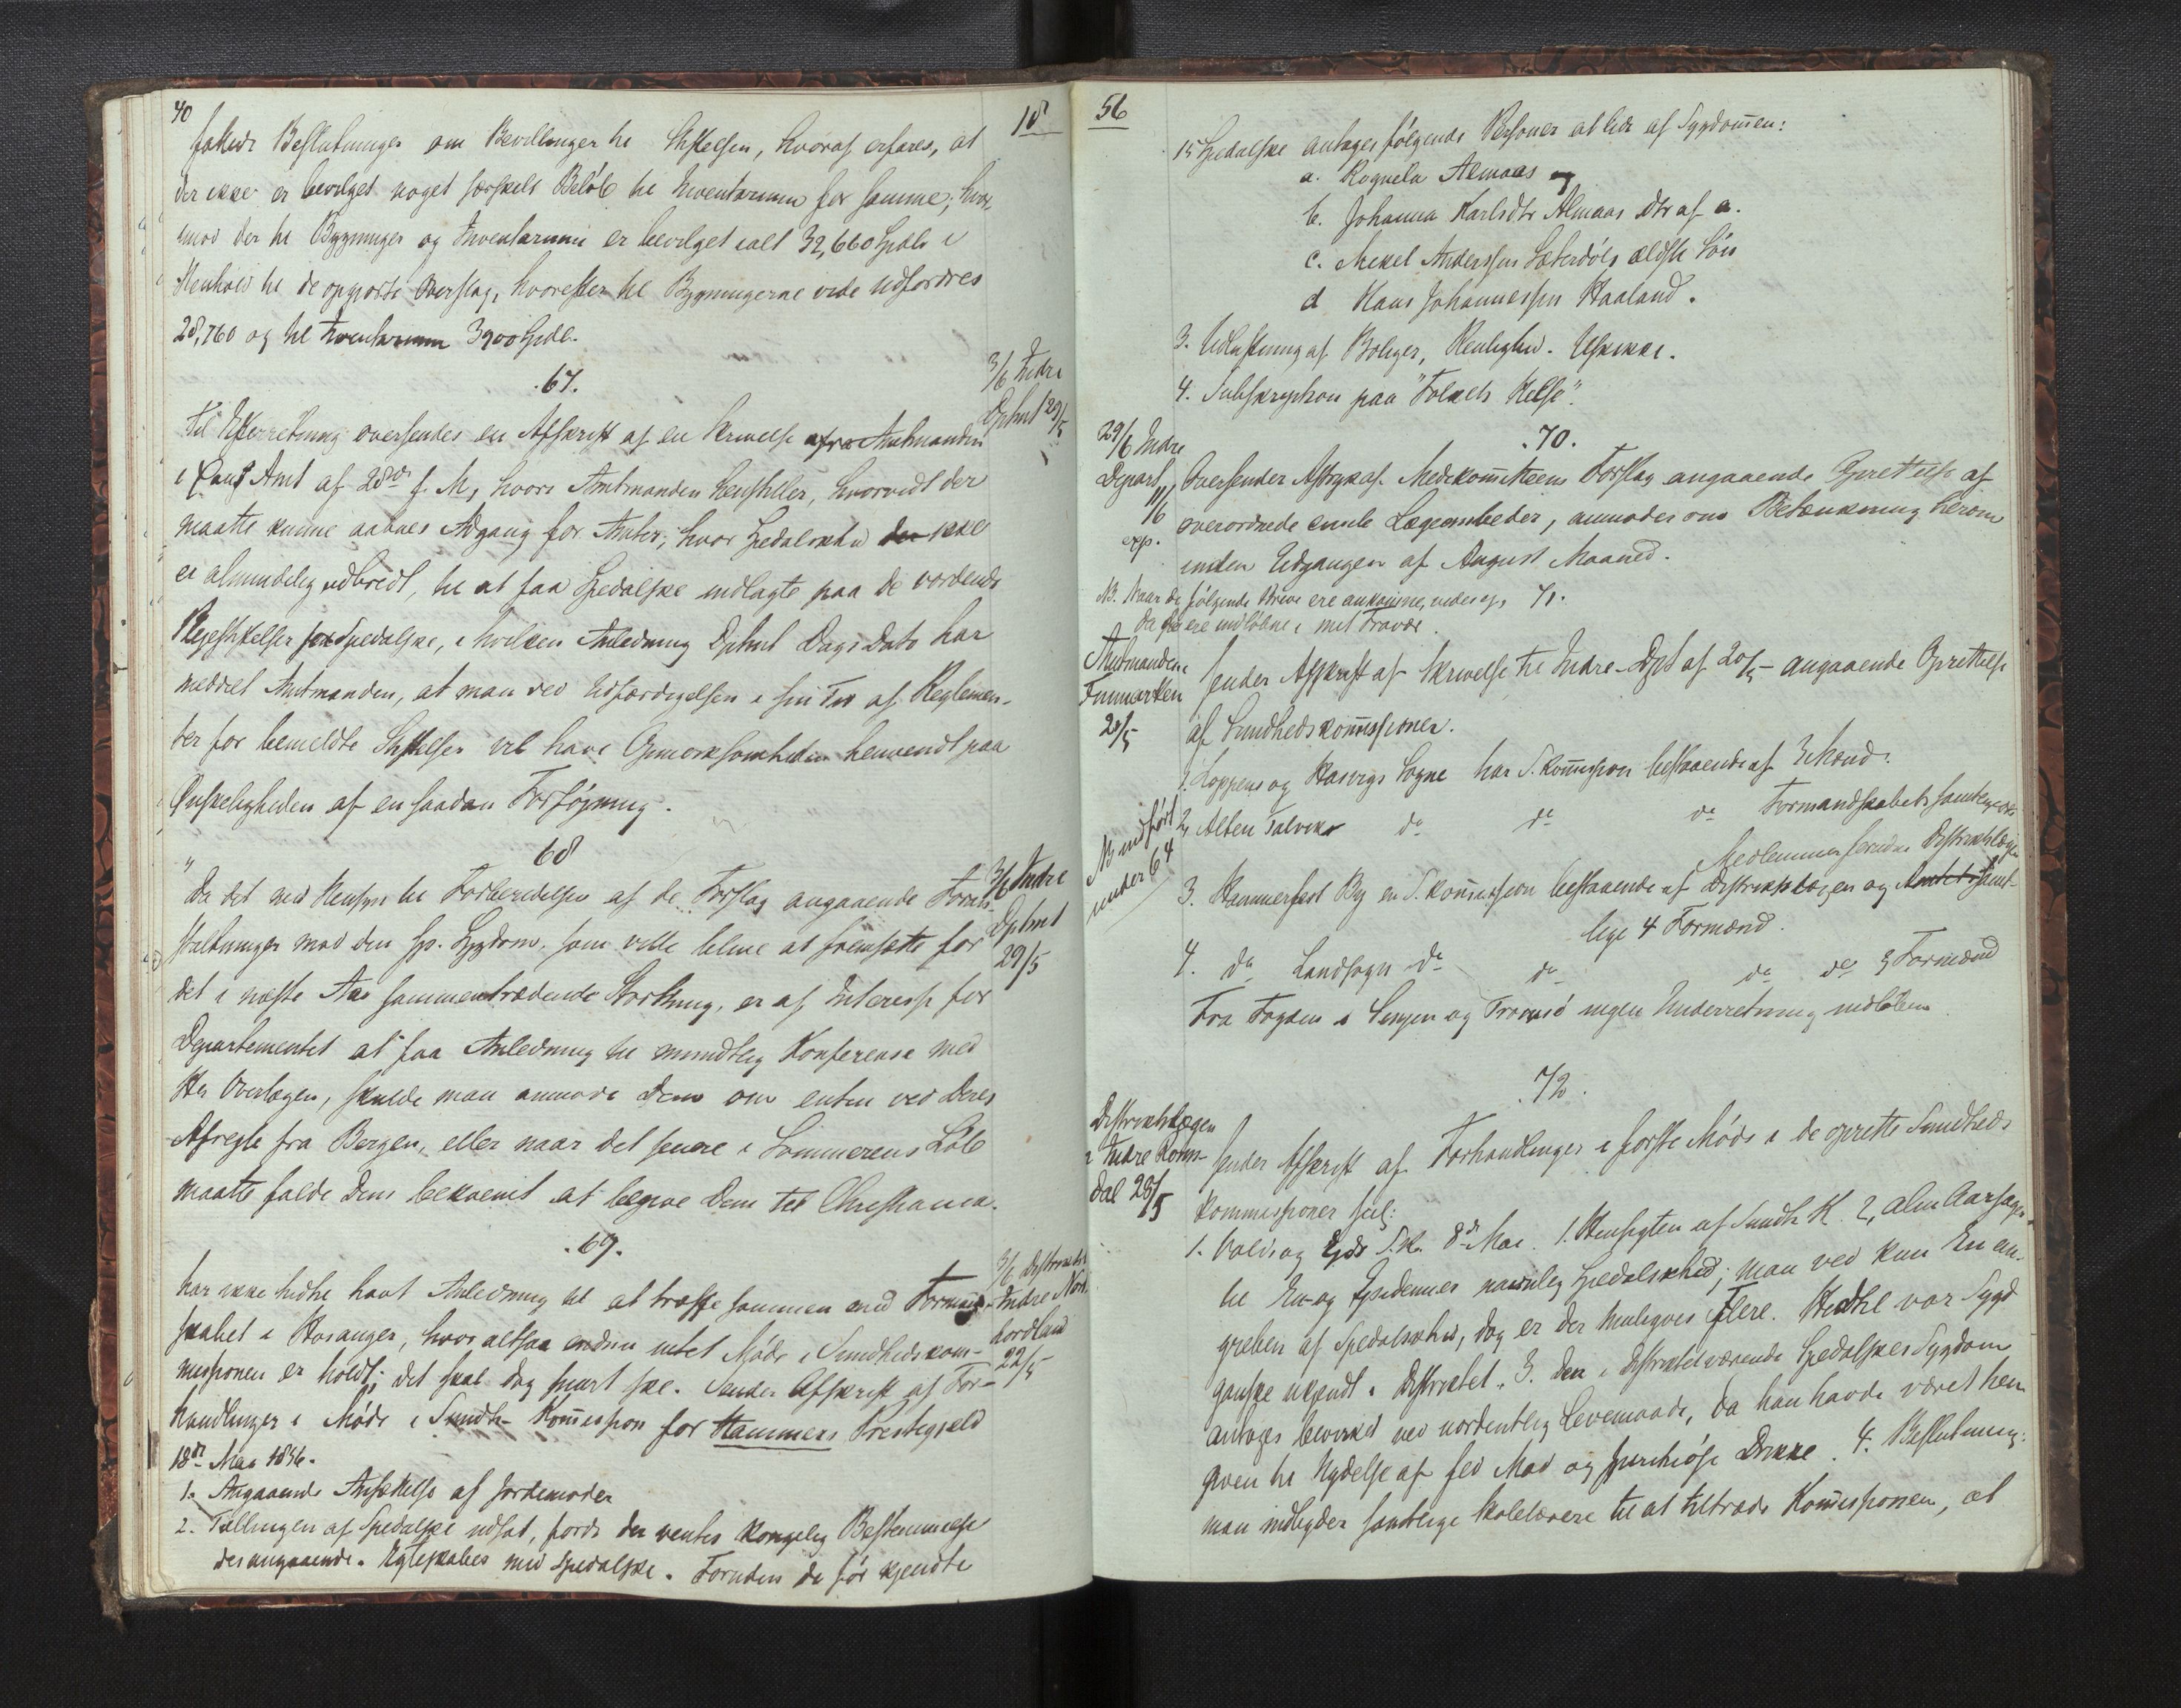 40
18
fattede Beslutninger om Bevillinger til Stiftelsen, hvoraf erfares, at
der ikke er bevilget noget særskilt Beløb til Inventarium for samme; hvor-
imod der til Bygninger og Inventarium er bevilget ialt 32,660 Spdlr i
Henhold til de opgjorte Overslag, hvorefter til Bygningerne vilde udfordres
28,760 og til Inventarium 3900 Spdlr.
.67.
3/6 Indre
Dptmt 29/5
Til Efterretning oversendes en Afskrift af en Skrivelse fra Amtmanden
i Amt af 28de f. M, hvori Amtmanden henstiller, hvorvidt der
maatte kunne aabnes Adgang for Amter, hvor Spedalskhed der ikke
er almindelig udbredt, til at faa Spedalske indlagte paa de vordende
Plejestiftelser for Spedalske, i hvilken Anledning Dptmt Dags Dato har
meddelt Amtmanden, at man ved Udfærdigelsen i sin Tid af Reglemen-
ter for bemeldte Stiftelser vil have Opmærksomheden henvendt paa
Ønskeligheden af en saadan Forføjning.
68
3/6 Indre
Dptmt
29/5
"Da det med Hensyn til Forberedelsen af de Forslag angaaende Foran-
staltninger mod den sp. Sygdom, som ville blive at fremsætte for
det i næste Aar sammentrædende Storthing, er af Interesse for
Departementet at faa Anledning til mundtlig Konference med
Hr Overlægen, skulde man anmode Dem om enten ved Deres
Afrejse fra Bergen, eller naar det senere i Sommerens Løb
maatte falde Dem bekvemt at begive Dem til Christiania.
.69.
3/6 Distriktsl
Indre Nord-
hordland
22/5
har ikke hidtil havt Anledning til at træffe sammen med Formand-
skabet i Hosanger, hvor altsaa endnu intet Møde i Sundhedskom-
missionen er holdt; det skal dog snart ske. Sender Afskrift af For-
handlinger i Møde i Sundh- Kommission for Hammers Præstegjeld
18de Mai 1856.
1. Angaaende Ansættelse af Jordemoder
2. Tællingen af Spedalske udsat, fordi der ventes kongelig Bestemmelse
desangaaende. Ægteskaber med Spedalske. Foruden de før kjendte
56
15 Spedalske antages følgende Personer at lide af Sygdommen:
a. Rognela Almaas og
b. Johanna Karlsdtr Almaas Dtr af a.
c. Mikel Anderssen Sæterdøls ældste Søn
d Hans Johannessen Haaland.
3. Udluftning af Boliger, Renlighed. Uskikke.
4. Subskription paa "Folkets Helse".
.70.
29/6 Indre
Depart
11/6
exp.
Oversender Aftryk af Medikomiteens Forslag angaaende Oprettelse af
overordnede civile Lægeembeder, anmoder om Betænkning herom
inden Udgangen af August Maaned.
NB. Naar de følgende Breve ere ankomne, vides ej, 71.
da de ere indløbne i mit Fravær.
Amtmanden i
Finmarken
20/5
sender Afskrift af Skrivelse til Indre-Dpt af 20/5 - angaaende Oprettelse
af Sundhedskommissioner.
1. Loppens og Hasvigs Sogne har S. Kommission bestaaende af 3 Mænd.
NB indført
under 64
2, Alten Talvik do do do Formandskabets samtlige
Medlemmer foruden Distriktslægen
3. Hammerfest By en S. kommission bestaaende af Distriktslægen og Amtets samt-
lige 4 Formænd.
4. do Landsogn do do do do 3 Formænd
Fra Fogden i Senjen og Tromsø ingen Underretning indløben
.72.
Distriktslægen
i Indre Roms-
dal 28/5
sender Afskrift af Forhandlinger i første Møde i de oprettede Sundheds
kommissioner fulg:
1. Voldo og Eids S.K. 8de Mai. 1. Hensigten af Sundh K. 2, Alm Aarsager
til En- og Epidemier navnlig Spedalskhed; man ved kun En an-
greben af Spedalskhed, dog er der muligvis Flere. Hidtil var Sygd
ganske ukjendt i Distriktet. 3. Den i Distriktet værende Spedalskes Sygdom
antages bevirket ved uordentlig Levemaade, da han havde været hen
given til Nydelse af fed Mad og spirituøse Drikke. 4. Beslutning:
man indbyder samtlige Skolelærere til at tiltræde Kommissionen, at